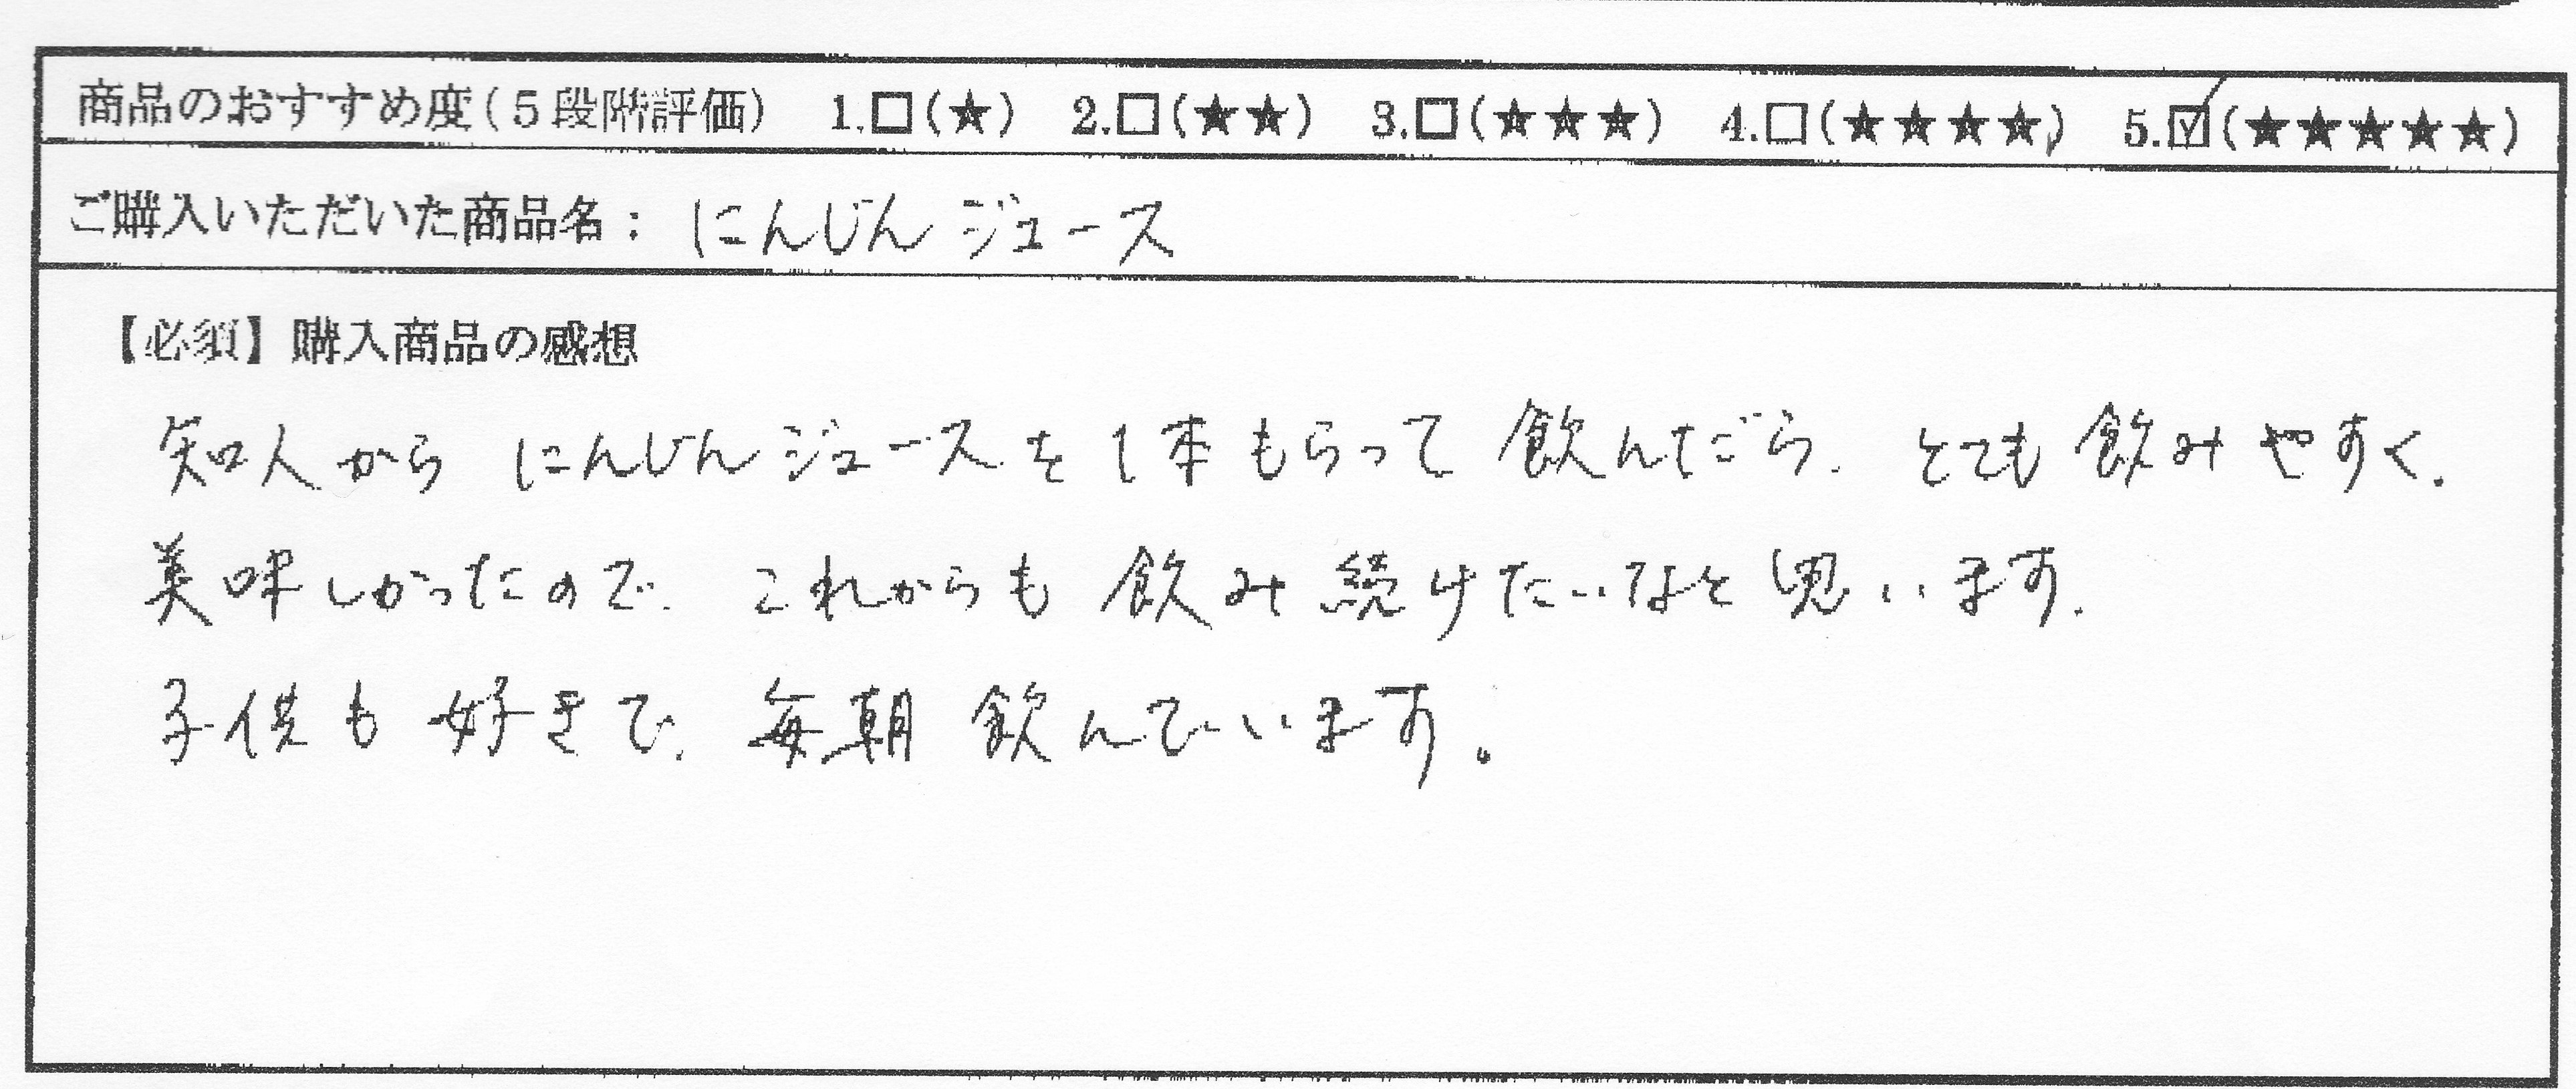 商品のおすすめ度(5段階評価) 1.□(★) 2.□(★★) 3.□(★★★) 4.□(★★★★) 5.☑(★★★★★)
ご購入いただいた商品名: にんじんジュース
【必須】購入商品の感想
知人からにんじんジュースを1本もらって飲んだら、とても飲みやすく、
美味しかったので、これからも飲み続けたいなと思います。
子供も好きで、毎朝飲んでいます。